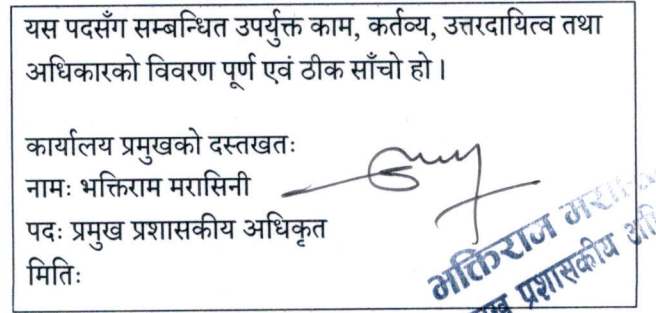 यस पदसँग सम्बन्धित उपर्युक्त काम, कर्तव्य, उत्तरदायित्व तथा
अधिकारको विवरण पूर्ण एवं ठीक साँचो हो ।
कार्यालय प्रमुखको दस्तखतः
नामः भक्तिराम मरासिनी
पदः प्रमुख प्रशासकीय अधिकृत
मितिः
भक्तिराज
प्रशासकीय